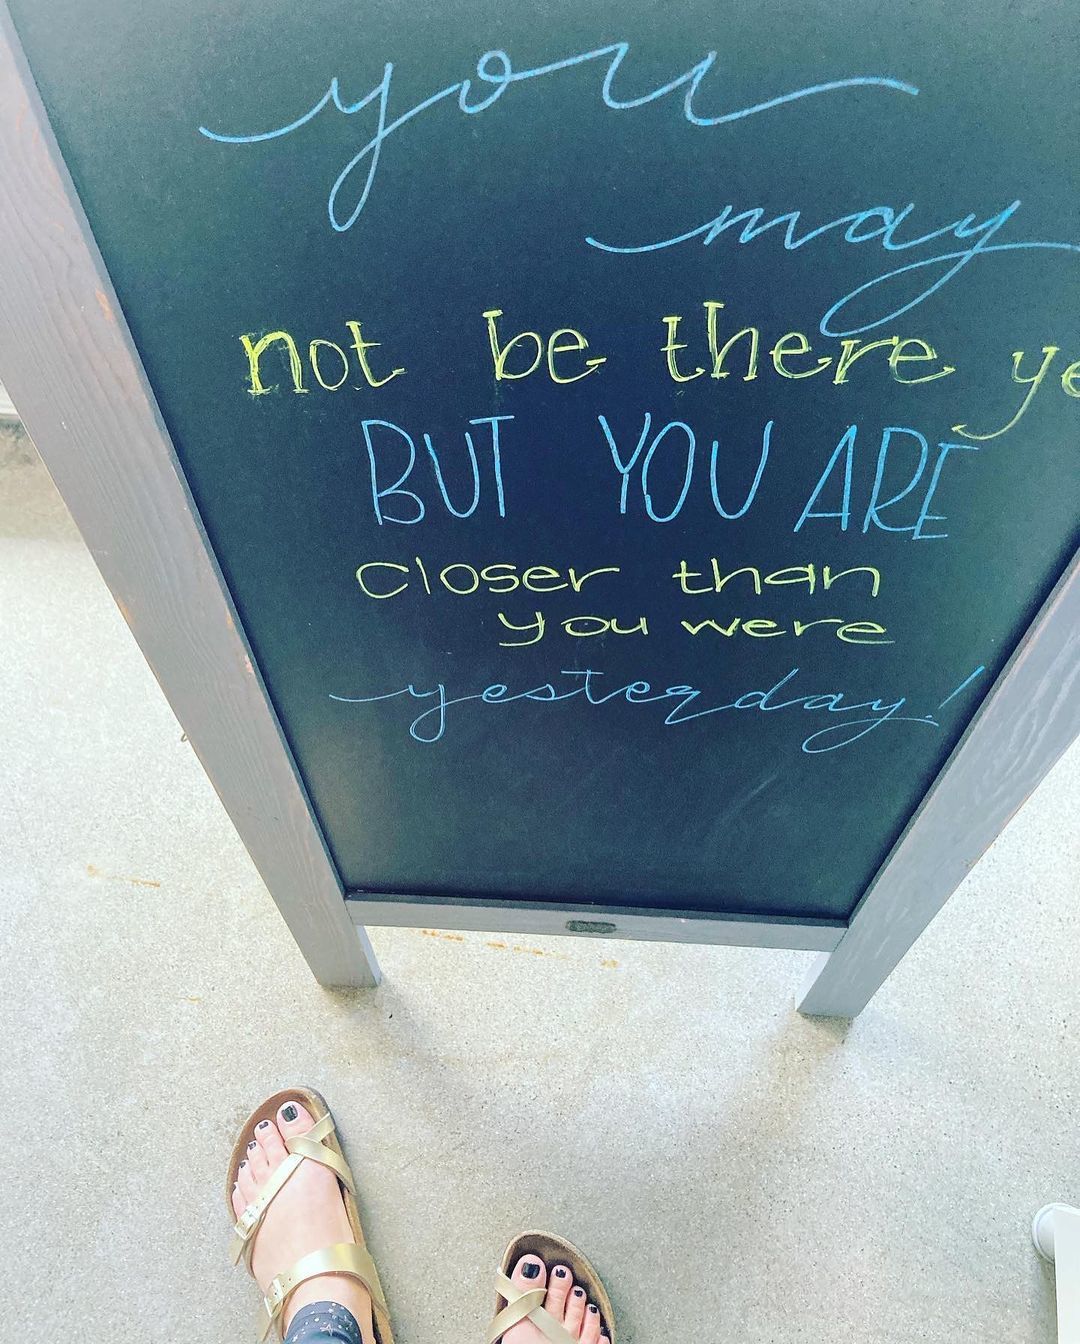 you
may
not be there ye
BUT YOU ARE
closer than
you were
yesterday!